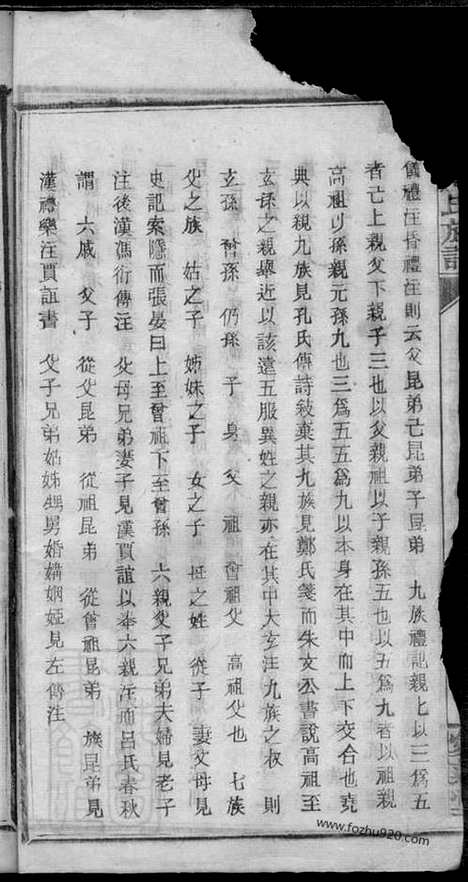 儀禮注昏禮注則云父昆弟亡昆弟子昆弟 九族禮記親親以三爲五
者亡上親父下親子三也以父親祖以子親孫五也以五爲九者以祖親
高祖以孫親元孫九也三爲五五爲九以本身在其中而上下交合也堯
典以親九族見孔氏傳詩敍棄其九族見鄭氏箋而朱文公書說高祖至
玄孫之親舉近以該遠五服異姓之親亦在其中大玄注九族之教 則
玄孫 曾孫 仍孫 子 身 父 祖 曾祖父 高祖父也 七族
父之族 姑之子 姊妹之子 女之子 母之姓 從子 妻父母見
史記索隱而張晏曰上至曾祖下至曾孫 六親父子兄弟夫婦見老子
注後漢馮衍傳注 父母兄弟妻子見漢賈誼以奉六親注而呂氏春秋
謂 六戚 父子 從父昆弟 從祖昆弟 從曾祖昆弟 族昆弟見
漢禮樂注賈誼書 父子兄弟姑姊甥舅婚媾姻婭見左傳注
氏族譜
www.fozhu920.com